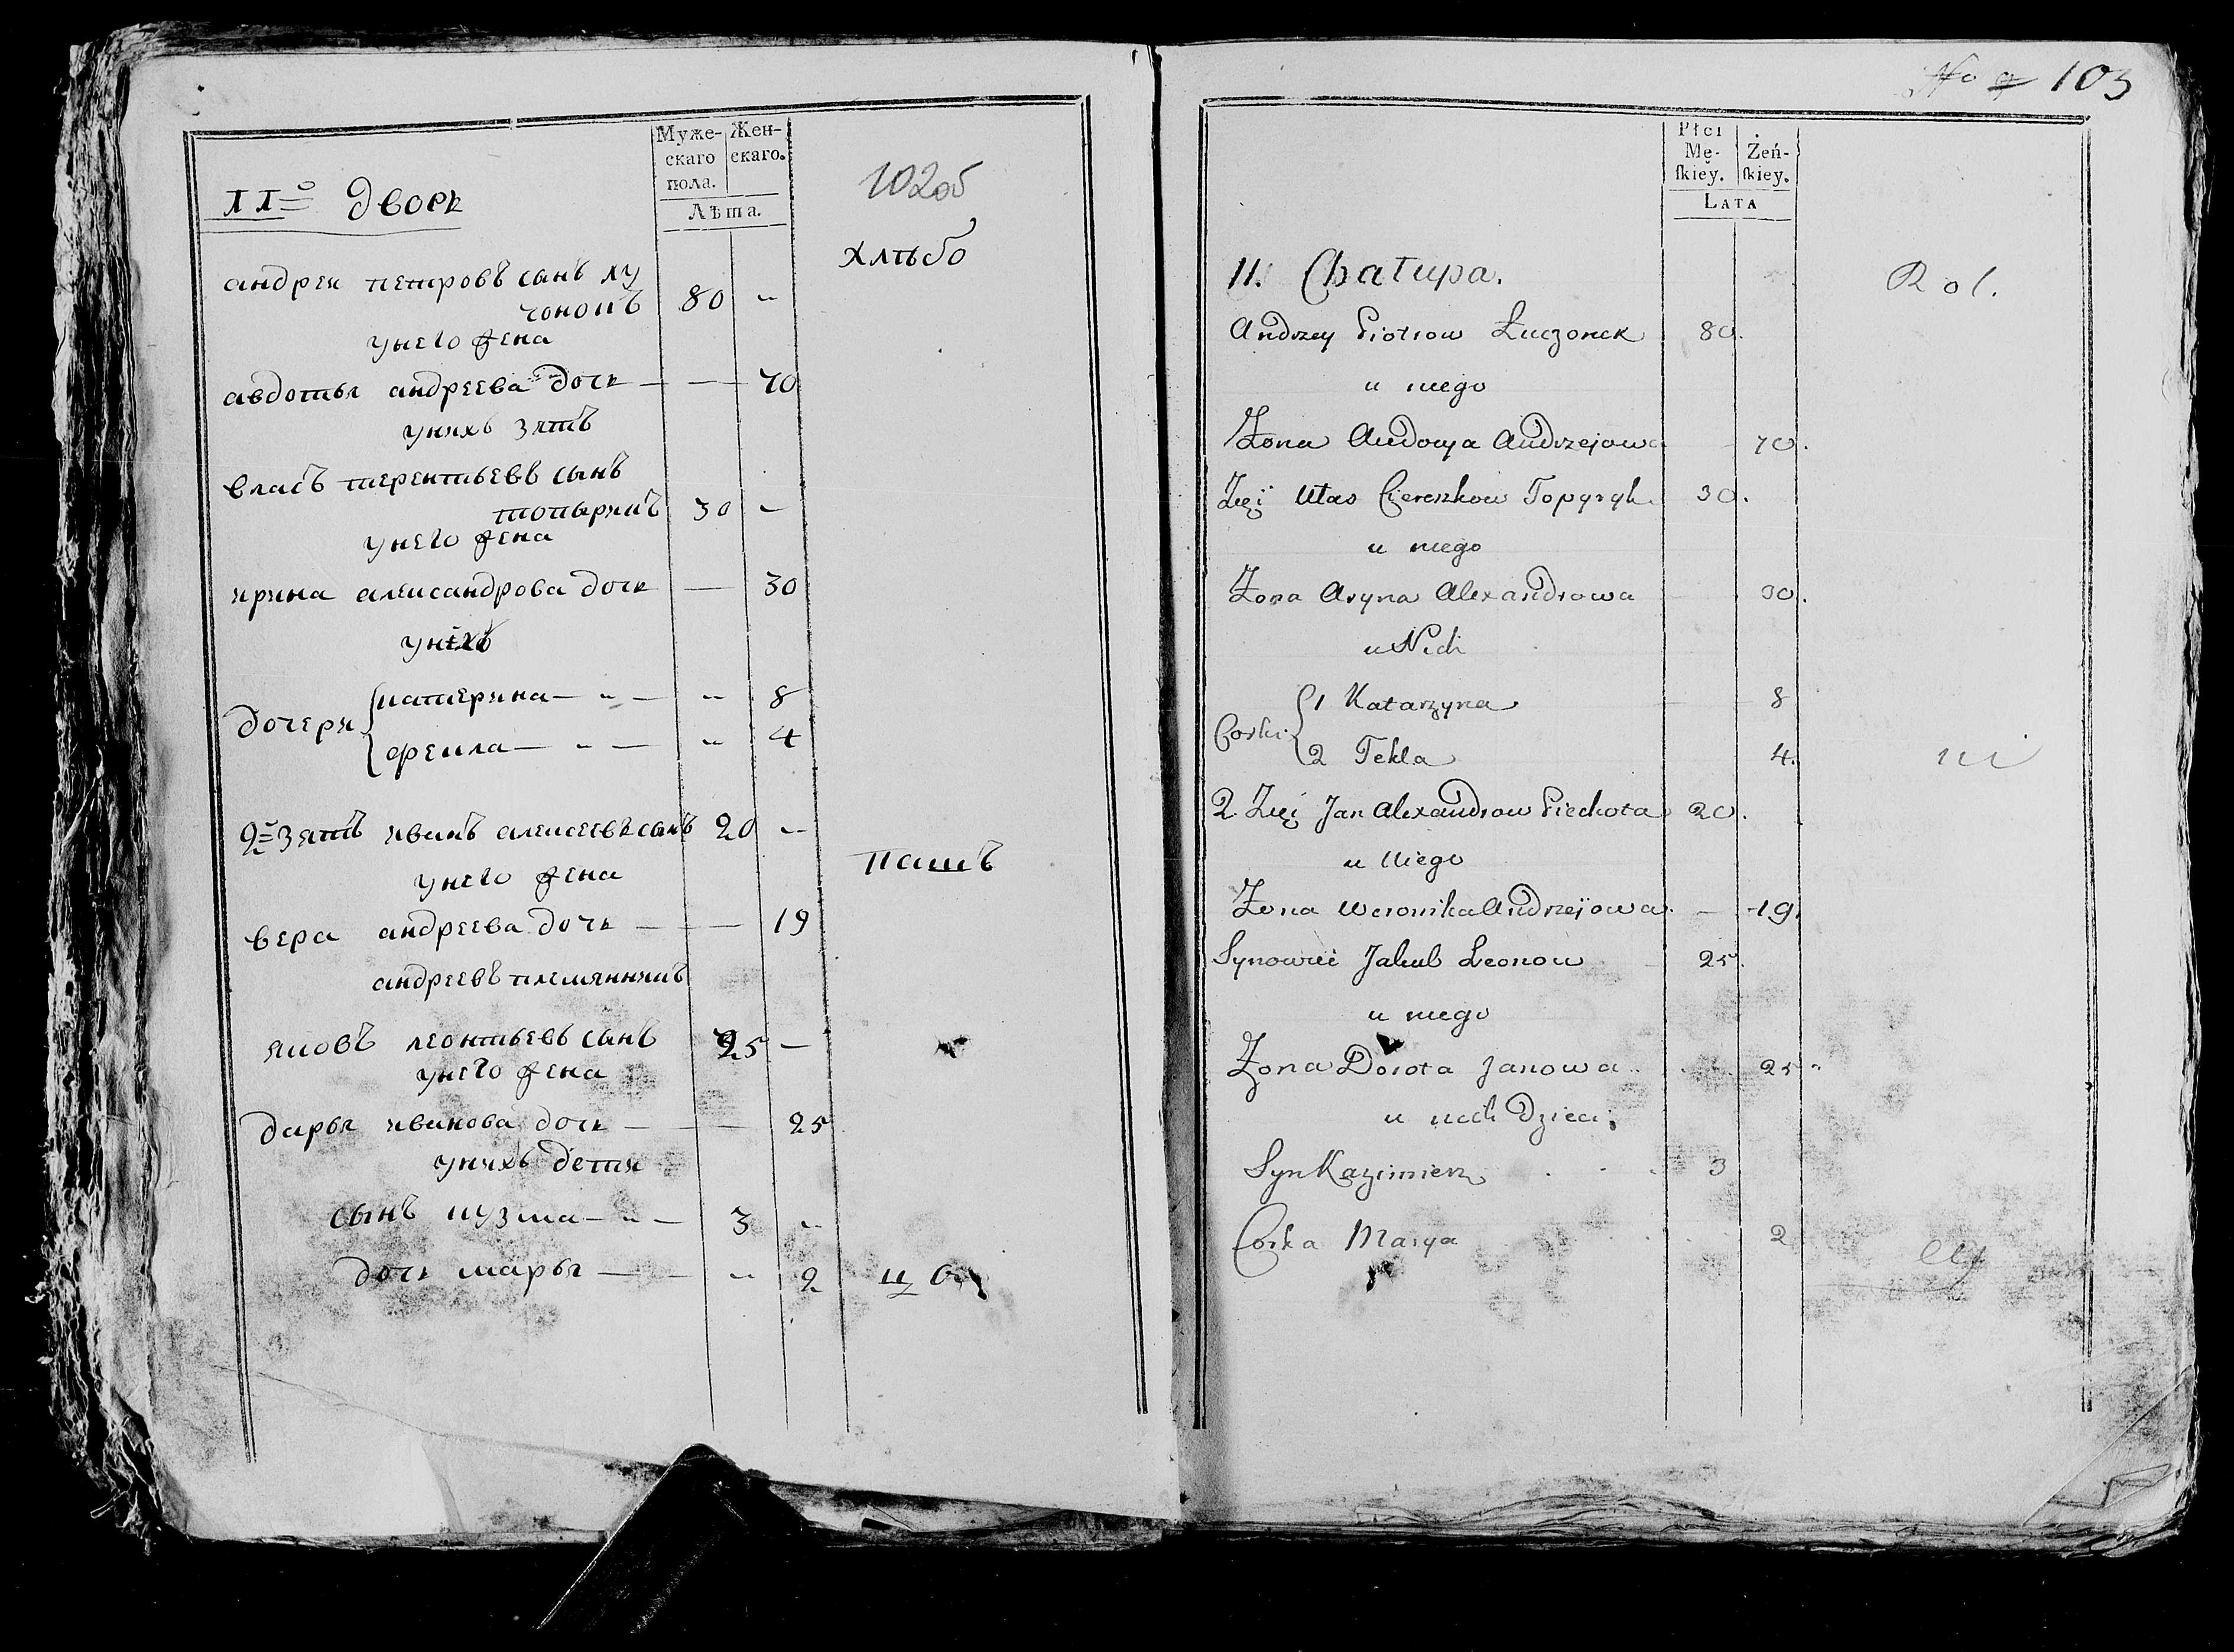 Муже-
скаго
пола.
Жен-
скаго.
Лѣта.
102об
11=о дворъ
хлѣбо
андреи петровъ сынъ лу
чонокъ 80 "
унего жена
авдотья андреева дочь — — 70
унихъ зять
власъ терентьевъ сынъ
топырикъ 30 "
унего жена
ирина александрова дочь — 30
унихъ
дочери
катерина — " — " 8
фекла — " — " 4
2=й зять иванъ алексеевъ сынъ 20 "
пашъ
унего жена
вера андреева дочь — — 19
андреевъ племянникъ
яковъ леонтьевъ сынъ 25 —
унего жена
дарья иванова дочь — — 25
унихъ дети
сынъ кузма — " — 3 "
дочь марья — " 2
No 103
Płci
Mę-
skiey.
Żeń-
skiey.
LATA
11. Chałupa.
Rol.
Andrzey Piotrow Łuczonek 80.
u niego
Żona Audocya Andrzejowa 70.
Zięć Ułas Ciereszkow Topyryk 30.
u niego
Żona Aryna Alexandrowa 30.
u Nich
Corki
1 Katarzyna 8
2 Tekla 4.
2 Zięć Jan Alexandrow Piechota 20.
u Niego
Żona Weronika Andrzejowa. — 19.
Synowiec Jakub Leonow 25.
u niego
Żona Dorota Janowa 25
u nich Dzieci
Syn Kazimierz 3
Corka Marya 2